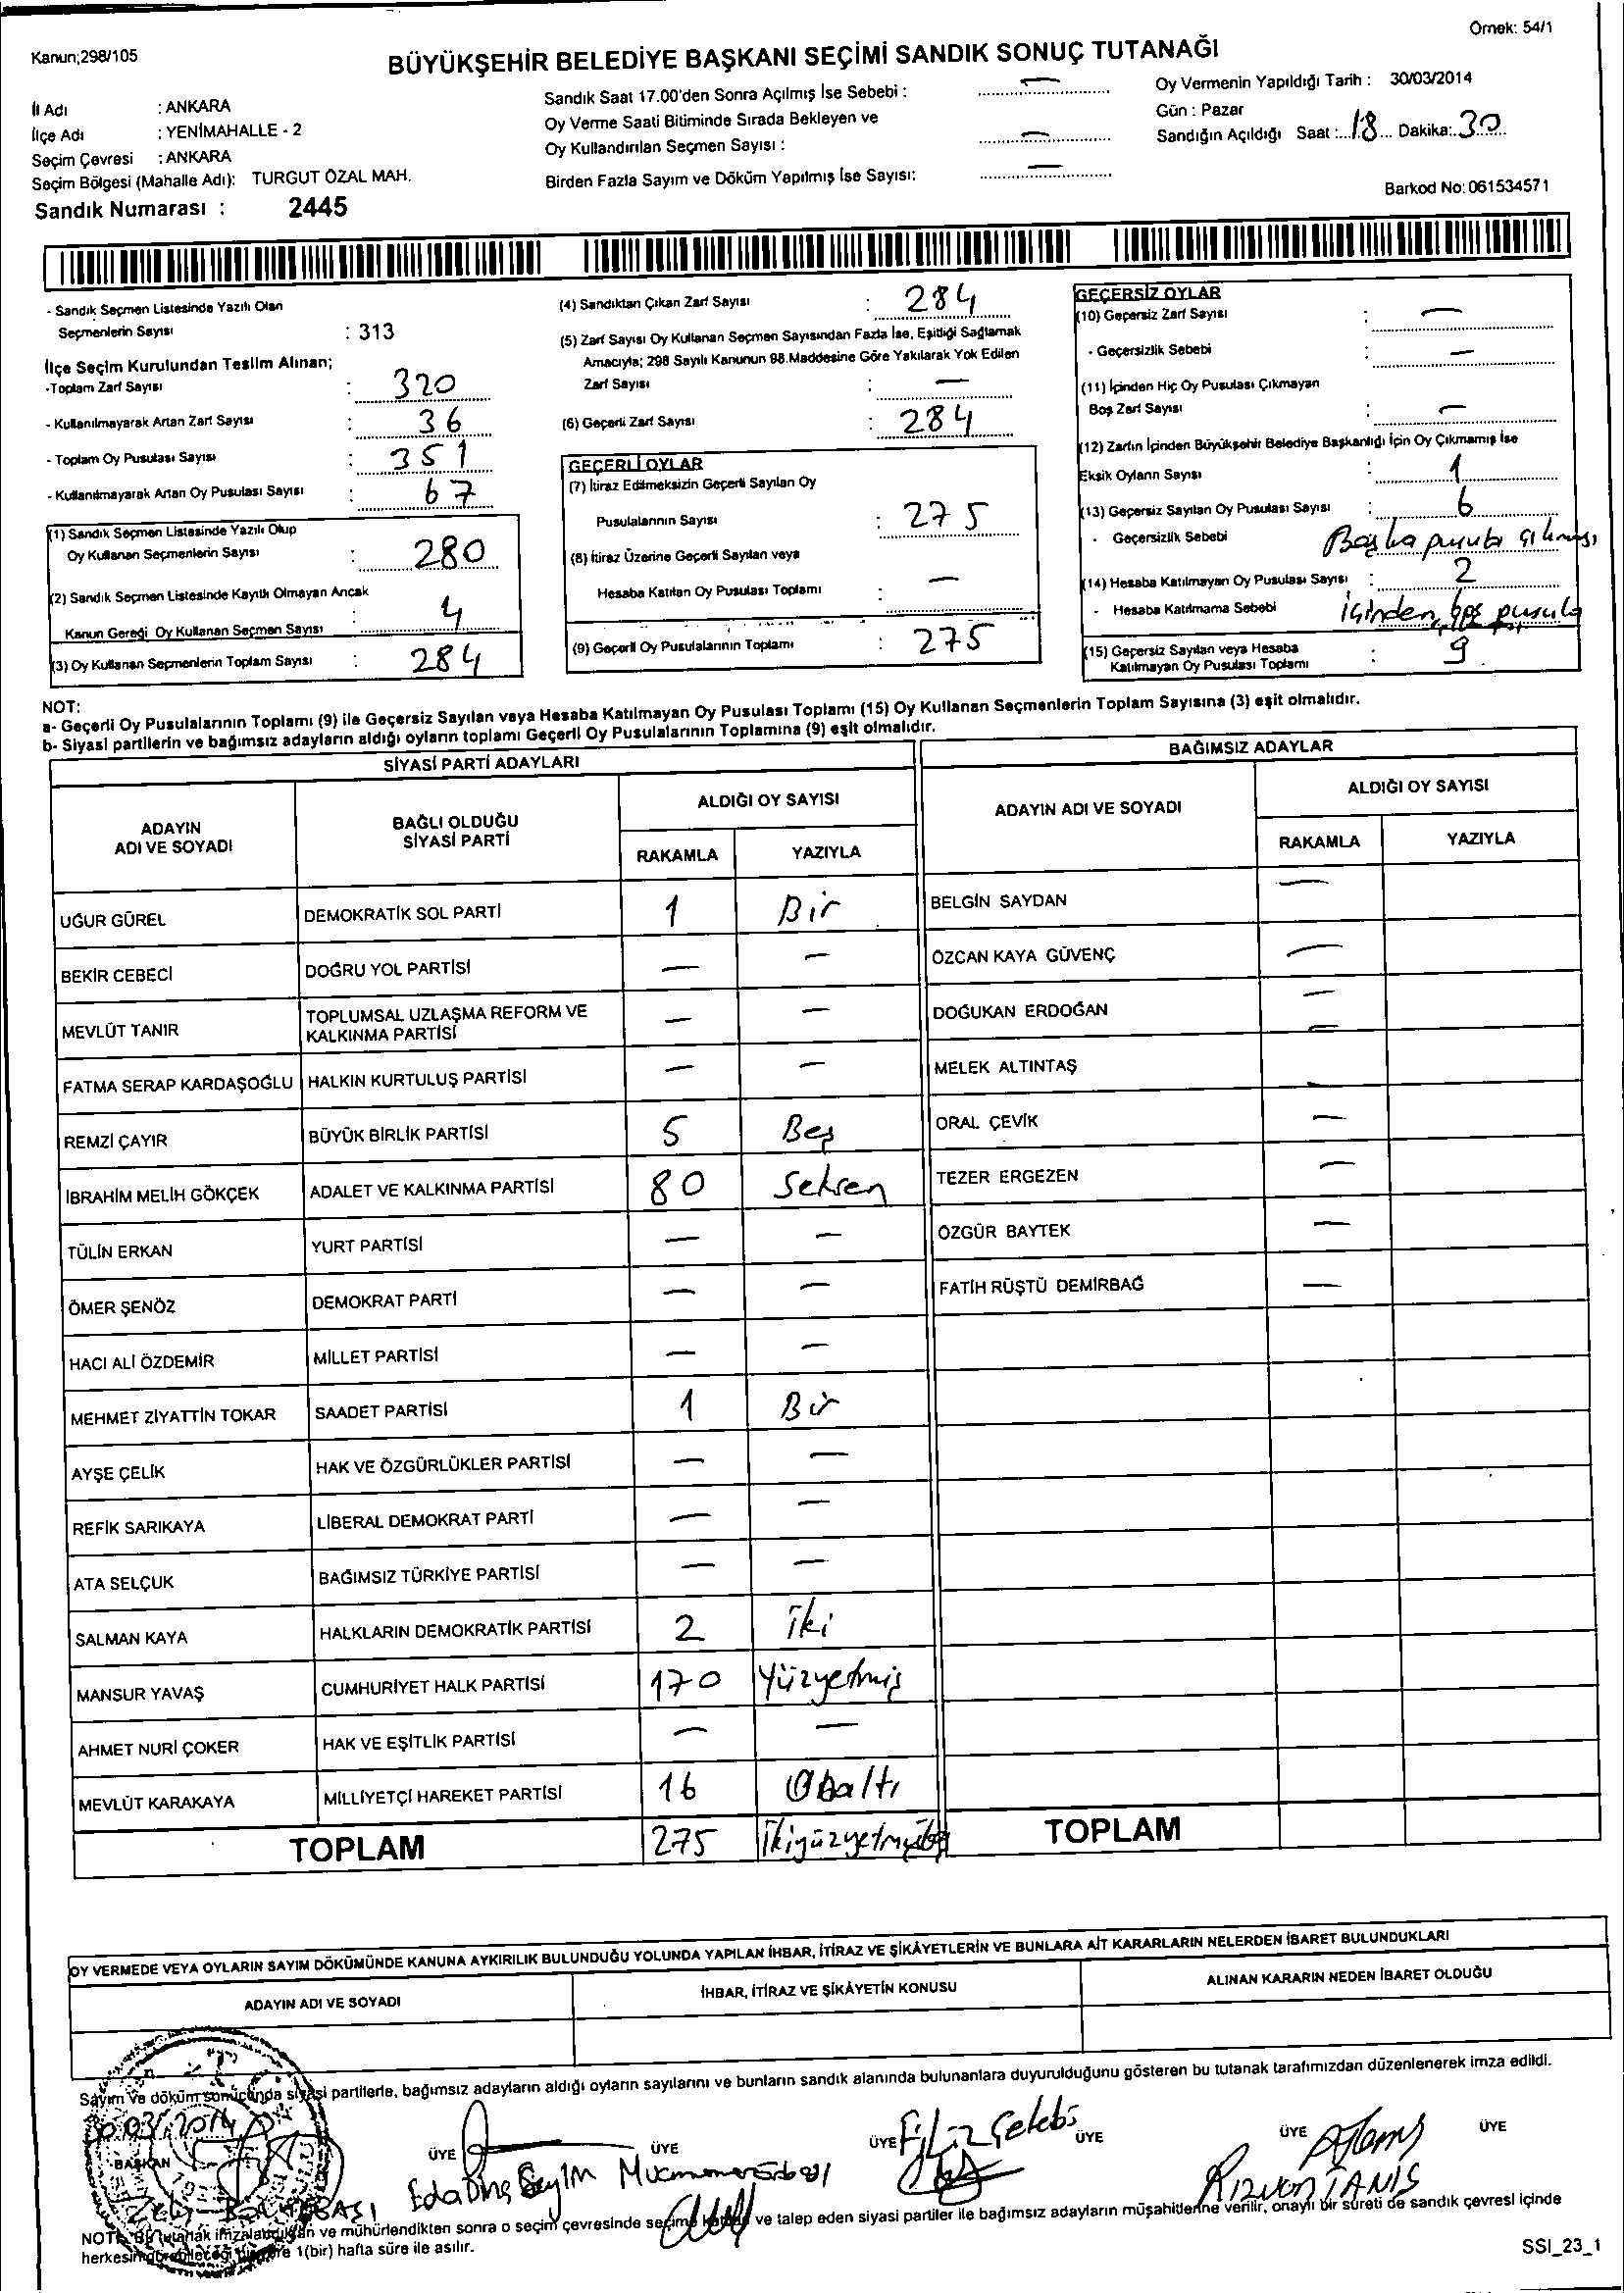 Kanun;298/105
Örnek: 54/1
BÜYÜKŞEHİR BELEDİYE BAŞKANI SEÇİMİ SANDIK SONUÇ TUTANAĞI
İl Adı : ANKARA
İlçe Adı : YENİMAHALLE - 2
Seçim Çevresi : ANKARA
Seçim Bölgesi (Mahalle Adı): TURGUT ÖZAL MAH.
Sandık Numarası : 2445
Sandık Saat 17.00'den Sonra Açılmış İse Sebebi : —
Oy Verme Saati Bitiminde Sırada Bekleyen ve
Oy Kullandırılan Seçmen Sayısı : —
Birden Fazla Sayım ve Döküm Yapılmış İse Sayısı: —
Oy Vermenin Yapıldığı Tarih : 30/03/2014
Gün : Pazar
Sandığın Açıldığı Saat : 18 Dakika: 30
Barkod No: 061534571
- Sandık Seçmen Listesinde Yazılı Olan
Seçmenlerin Sayısı : 313
İlçe Seçim Kurulundan Teslim Alınan;
-Toplam Zarf Sayısı : 320
- Kullanılmayarak Artan Zarf Sayısı : 36
- Toplam Oy Pusulası Sayısı : 351
- Kullanılmayarak Artan Oy Pusulası Sayısı : 67
(1) Sandık Seçmen Listesinde Yazılı Olup
Oy Kullanan Seçmenlerin Sayısı : 280
(2) Sandık Seçmen Listesinde Kayıtlı Olmayan Ancak
Kanun Gereği Oy Kullanan Seçmen Sayısı : 4
(3) Oy Kullanan Seçmenlerin Toplam Sayısı : 284
(4) Sandıktan Çıkan Zarf Sayısı : 284
(5) Zarf Sayısı Oy Kullanan Seçmen Sayısından Fazla İse, Eşitliği Sağlamak
Amacıyla; 298 Sayılı Kanunun 98.Maddesine Göre Yakılarak Yok Edilen
Zarf Sayısı : —
(6) Geçerli Zarf Sayısı : 284
GEÇERLİ OYLAR
(7) İtiraz Edilmeksizin Geçerli Sayılan Oy
Pusulalarının Sayısı : 275
(8) İtiraz Üzerine Geçerli Sayılan veya
Hesaba Katılan Oy Pusulası Toplamı : —
(9) Geçerli Oy Pusulalarının Toplamı : 275
GEÇERSİZ OYLAR
(10) Geçersiz Zarf Sayısı : —
- Geçersizlik Sebebi : —
(11) İçinden Hiç Oy Pusulası Çıkmayan
Boş Zarf Sayısı : —
(12) Zarfın İçinden Büyükşehir Belediye Başkanlığı İçin Oy Çıkmamış İse
Eksik Oyların Sayısı : 1
(13) Geçersiz Sayılan Oy Pusulası Sayısı : 6
- Geçersizlik Sebebi Başka pusula çıkması
(14) Hesaba Katılmayan Oy Pusulası Sayısı : 2
- Hesaba Katılmama Sebebi içinden boş pusula
(15) Geçersiz Sayılan veya Hesaba
Katılmayan Oy Pusulası Toplamı : 9
NOT:
a- Geçerli Oy Pusulalarının Toplamı (9) ile Geçersiz Sayılan veya Hesaba Katılmayan Oy Pusulası Toplamı (15) Oy Kullanan Seçmenlerin Toplam Sayısına (3) eşit olmalıdır.
b- Siyasi partilerin ve bağımsız adayların aldığı oyların toplamı Geçerli Oy Pusulalarının Toplamına (9) eşit olmalıdır.
SİYASİ PARTİ ADAYLARI
ADAYIN ADI VE SOYADI BAĞLI OLDUĞU SİYASİ PARTİ ALDIĞI OY SAYISI
RAKAMLA YAZIYLA
UĞUR GÜREL DEMOKRATİK SOL PARTİ 1 Bir
BEKİR CEBECİ DOĞRU YOL PARTİSİ — —
MEVLÜT TANIR TOPLUMSAL UZLAŞMA REFORM VE KALKINMA PARTİSİ — —
FATMA SERAP KARDAŞOĞLU HALKIN KURTULUŞ PARTİSİ — —
REMZİ ÇAYIR BÜYÜK BİRLİK PARTİSİ 5 Beş
İBRAHİM MELİH GÖKÇEK ADALET VE KALKINMA PARTİSİ 80 Seksen
TÜLİN ERKAN YURT PARTİSİ — —
ÖMER ŞENÖZ DEMOKRAT PARTİ — —
HACI ALİ ÖZDEMİR MİLLET PARTİSİ — —
MEHMET ZİYATTİN TOKAR SAADET PARTİSİ 1 Bir
AYŞE ÇELİK HAK VE ÖZGÜRLÜKLER PARTİSİ — —
REFİK SARIKAYA LİBERAL DEMOKRAT PARTİ — —
ATA SELÇUK BAĞIMSIZ TÜRKİYE PARTİSİ — —
SALMAN KAYA HALKLARIN DEMOKRATİK PARTİSİ 2 İki
MANSUR YAVAŞ CUMHURİYET HALK PARTİSİ 170 Yüzyetmiş
AHMET NURİ ÇOKER HAK VE EŞİTLİK PARTİSİ — —
MEVLÜT KARAKAYA MİLLİYETÇİ HAREKET PARTİSİ 16 Onaltı
TOPLAM 275 İkiyüzyetmişbeş
BAĞIMSIZ ADAYLAR
ADAYIN ADI VE SOYADI ALDIĞI OY SAYISI
RAKAMLA YAZIYLA
BELGİN SAYDAN —
ÖZCAN KAYA GÜVENÇ —
DOĞUKAN ERDOĞAN —
MELEK ALTINTAŞ —
ORAL ÇEVİK —
TEZER ERGEZEN —
ÖZGÜR BAYTEK —
FATİH RÜŞTÜ DEMİRBAĞ —
TOPLAM
OY VERMEDE VEYA OYLARIN SAYIM DÖKÜMÜNDE KANUNA AYKIRILIK BULUNDUĞU YOLUNDA YAPILAN İHBAR, İTİRAZ VE ŞİKÂYETLERİN VE BUNLARA AİT KARARLARIN NELERDEN İBARET BULUNDUKLARI
ADAYIN ADI VE SOYADI İHBAR, İTİRAZ VE ŞİKÂYETİN KONUSU ALINAN KARARIN NEDEN İBARET OLDUĞU
Sayım ve döküm sonucunda siyasi partilerle, bağımsız adayların aldığı oyların sayılarını ve bunların sandık alanında bulunanlara duyurulduğunu gösteren bu tutanak tarafımızdan düzenlenerek imza edildi.
30/03/2014
BAŞKAN ÜYE ÜYE ÜYE ÜYE ÜYE ÜYE
Filiz Çelebi
Eda
RIZVAN TANIŞ
NOT: Bu tutanak imzalandıktan ve mühürlendikten sonra o seçim çevresinde seçime katılan ve talep eden siyasi partiler ile bağımsız adayların müşahitlerine verilir, onaylı bir sureti de sandık çevresi içinde
herkesin görebileceği bir yere 1(bir) hafta süre ile asılır.
SSI_23_1